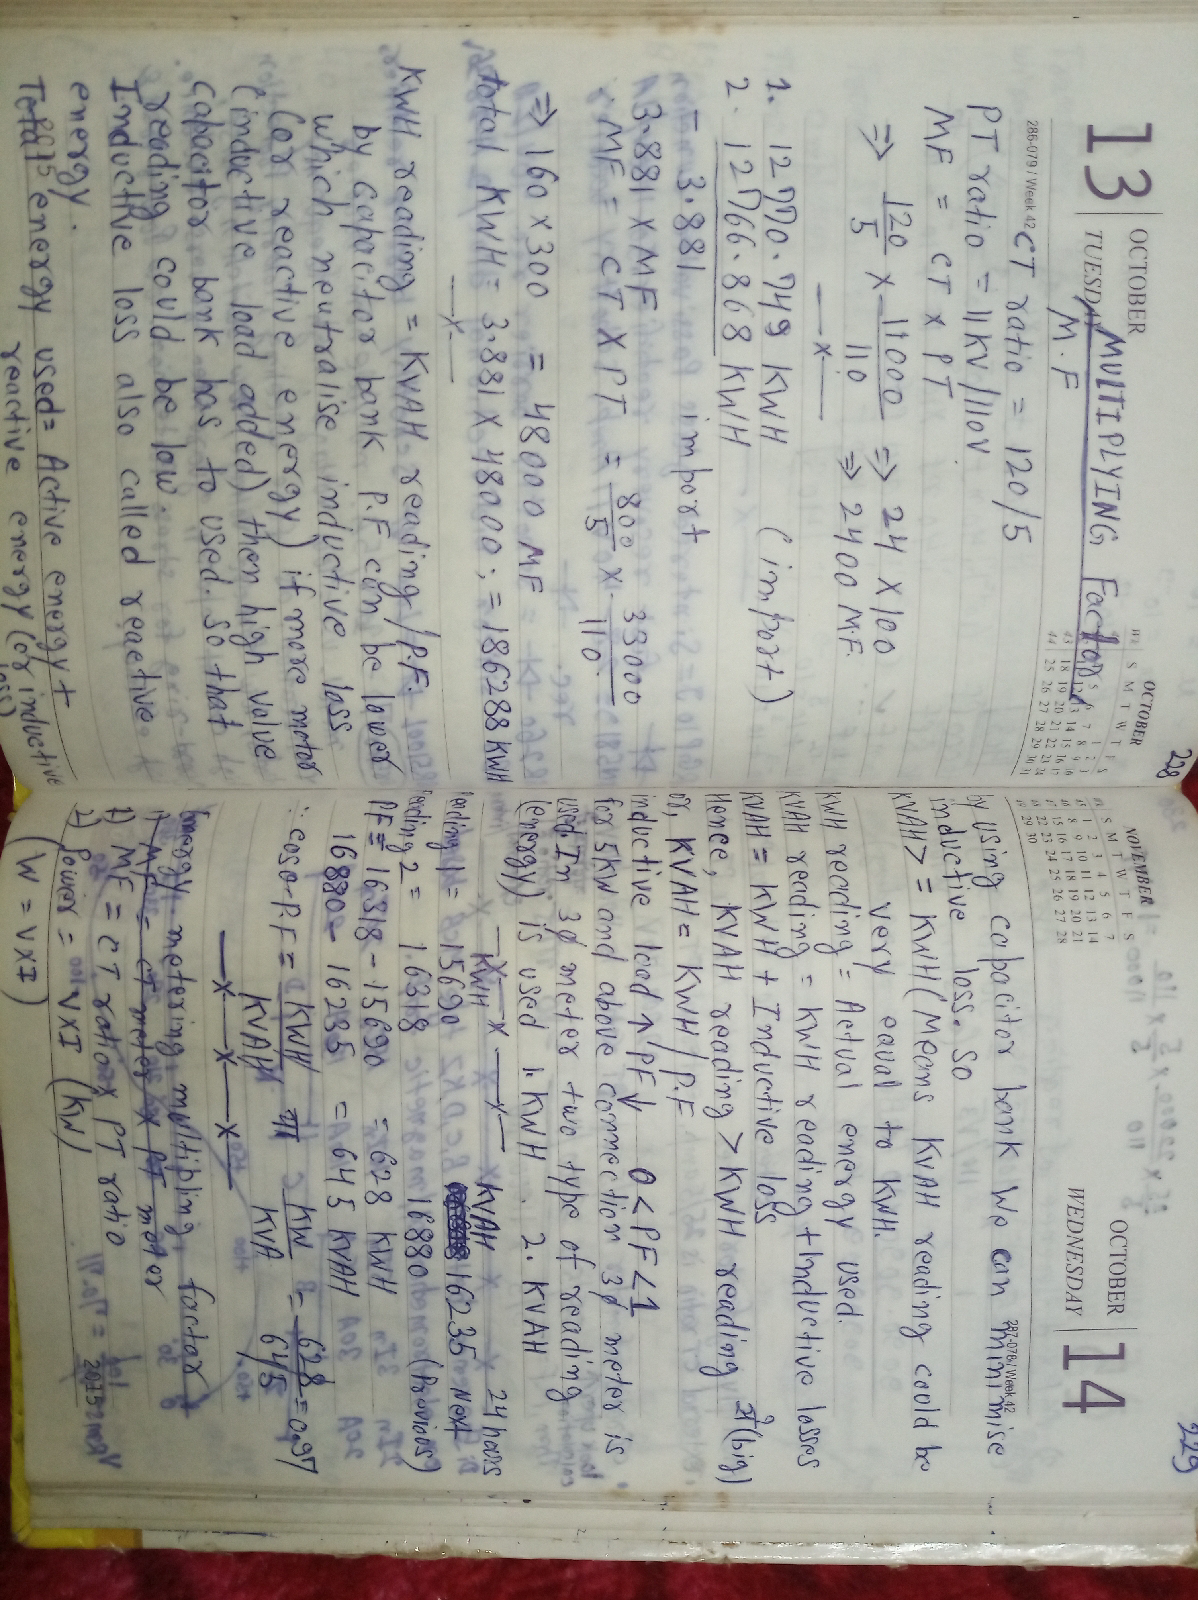 228
13 OCTOBER
TUESDAY
286-079 / Week 42
OCTOBER
MULTIPLYING Factors
M.F
CT ratio = 120/5
PT ratio = 11KV/110V
MF = CT x PT
=> 120/5 x 11000/110 => 24 x 100
=> 2400 M.F.
—x—
1. 12770.749 KWH (import)
2. 12766.868 KWH
= 3.881 import
3.881 x MF
MF = CT X PT = 800/5 x 33000/110
=> 160 x 300 = 48000 MF
total KWH = 3.881 x 48000 ; = 186288 KWH
—x—
KWH reading = KVAH reading/P.F.
by capacitor bank P.F can be lower
which neutralise inductive loss
(or reactive energy) if more motor
(inductive load added) then high value
capacitor bank has to used. so that
reading could be low
Inductive loss also called reactive
energy.
Total energy used = Active energy +
reactive energy (or inductive
loss)
229
NOVEMBER
OCTOBER 14
WEDNESDAY
287-078 / Week 42
by using capacitor bank we can minimise
inductive loss. So
KVAH > = KWH (Means KVAH reading could be
very equal to KWH.
KWH reading = Actual energy used.
KVAH reading = KWH reading + Inductive losses
KVAH = KWH + Inductive loss
Hence, KVAH reading > KWH reading (big)
or, KVAH = KWH / P.F
inductive load ↑ PF↓ 0 < PF < 1
for 5KW and above connection 3φ meter is
used In 3φ meter two type of reading
(energy) is used 1. KWH 2. KVAH
—x—x—x—
KWH KVAH 24 hours
reading 1 = 15690 16235 Next
reading 2 = 16318 16880 (Previous)
PF = 16318 - 15690 = 628 KWH
16880 - 16235 = 645 KVAH
∴ cosθ = P.F = KWH/KVAH KW/KVA = 628/645 = 0.97
—x—x—x—
Energy metering multipling factor
1) MF = CT ratio x PT ratio
2) Power = V x I (KW)
(W = V x I)